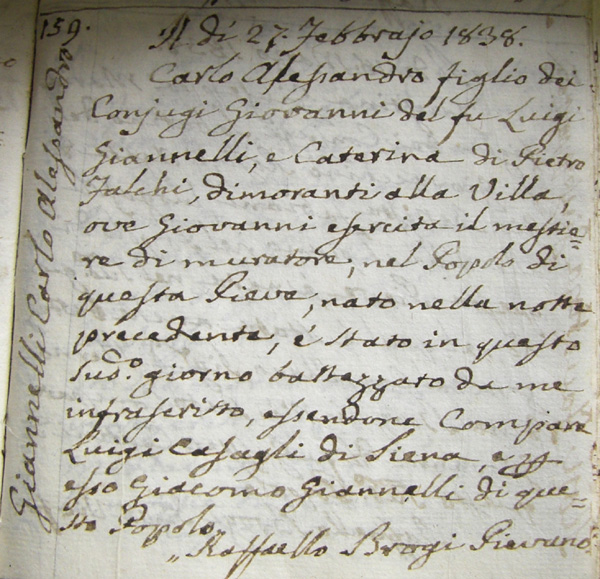 159.
Giannelli Carlo Alessandro
Il dì 27. Febbrajo 1838.
Carlo Alessandro figlio dei
Conjugi Giovanni del fu Luigi
Giannelli, e Caterina di Pietro
Falchi, dimoranti alla Villa,
ove Giovanni esercita il mestie=
re di muratore, nel Popolo di
questa Pieve, nato nella notte
precedente, é stato in questo
sud.o giorno battezzato da me
infrascritto, essendone Compare
Luigi Casagli di Siena, e p
esso Giacomo Giannelli di que=
sto Popolo.
„ Raffaello Brogi Pievano.